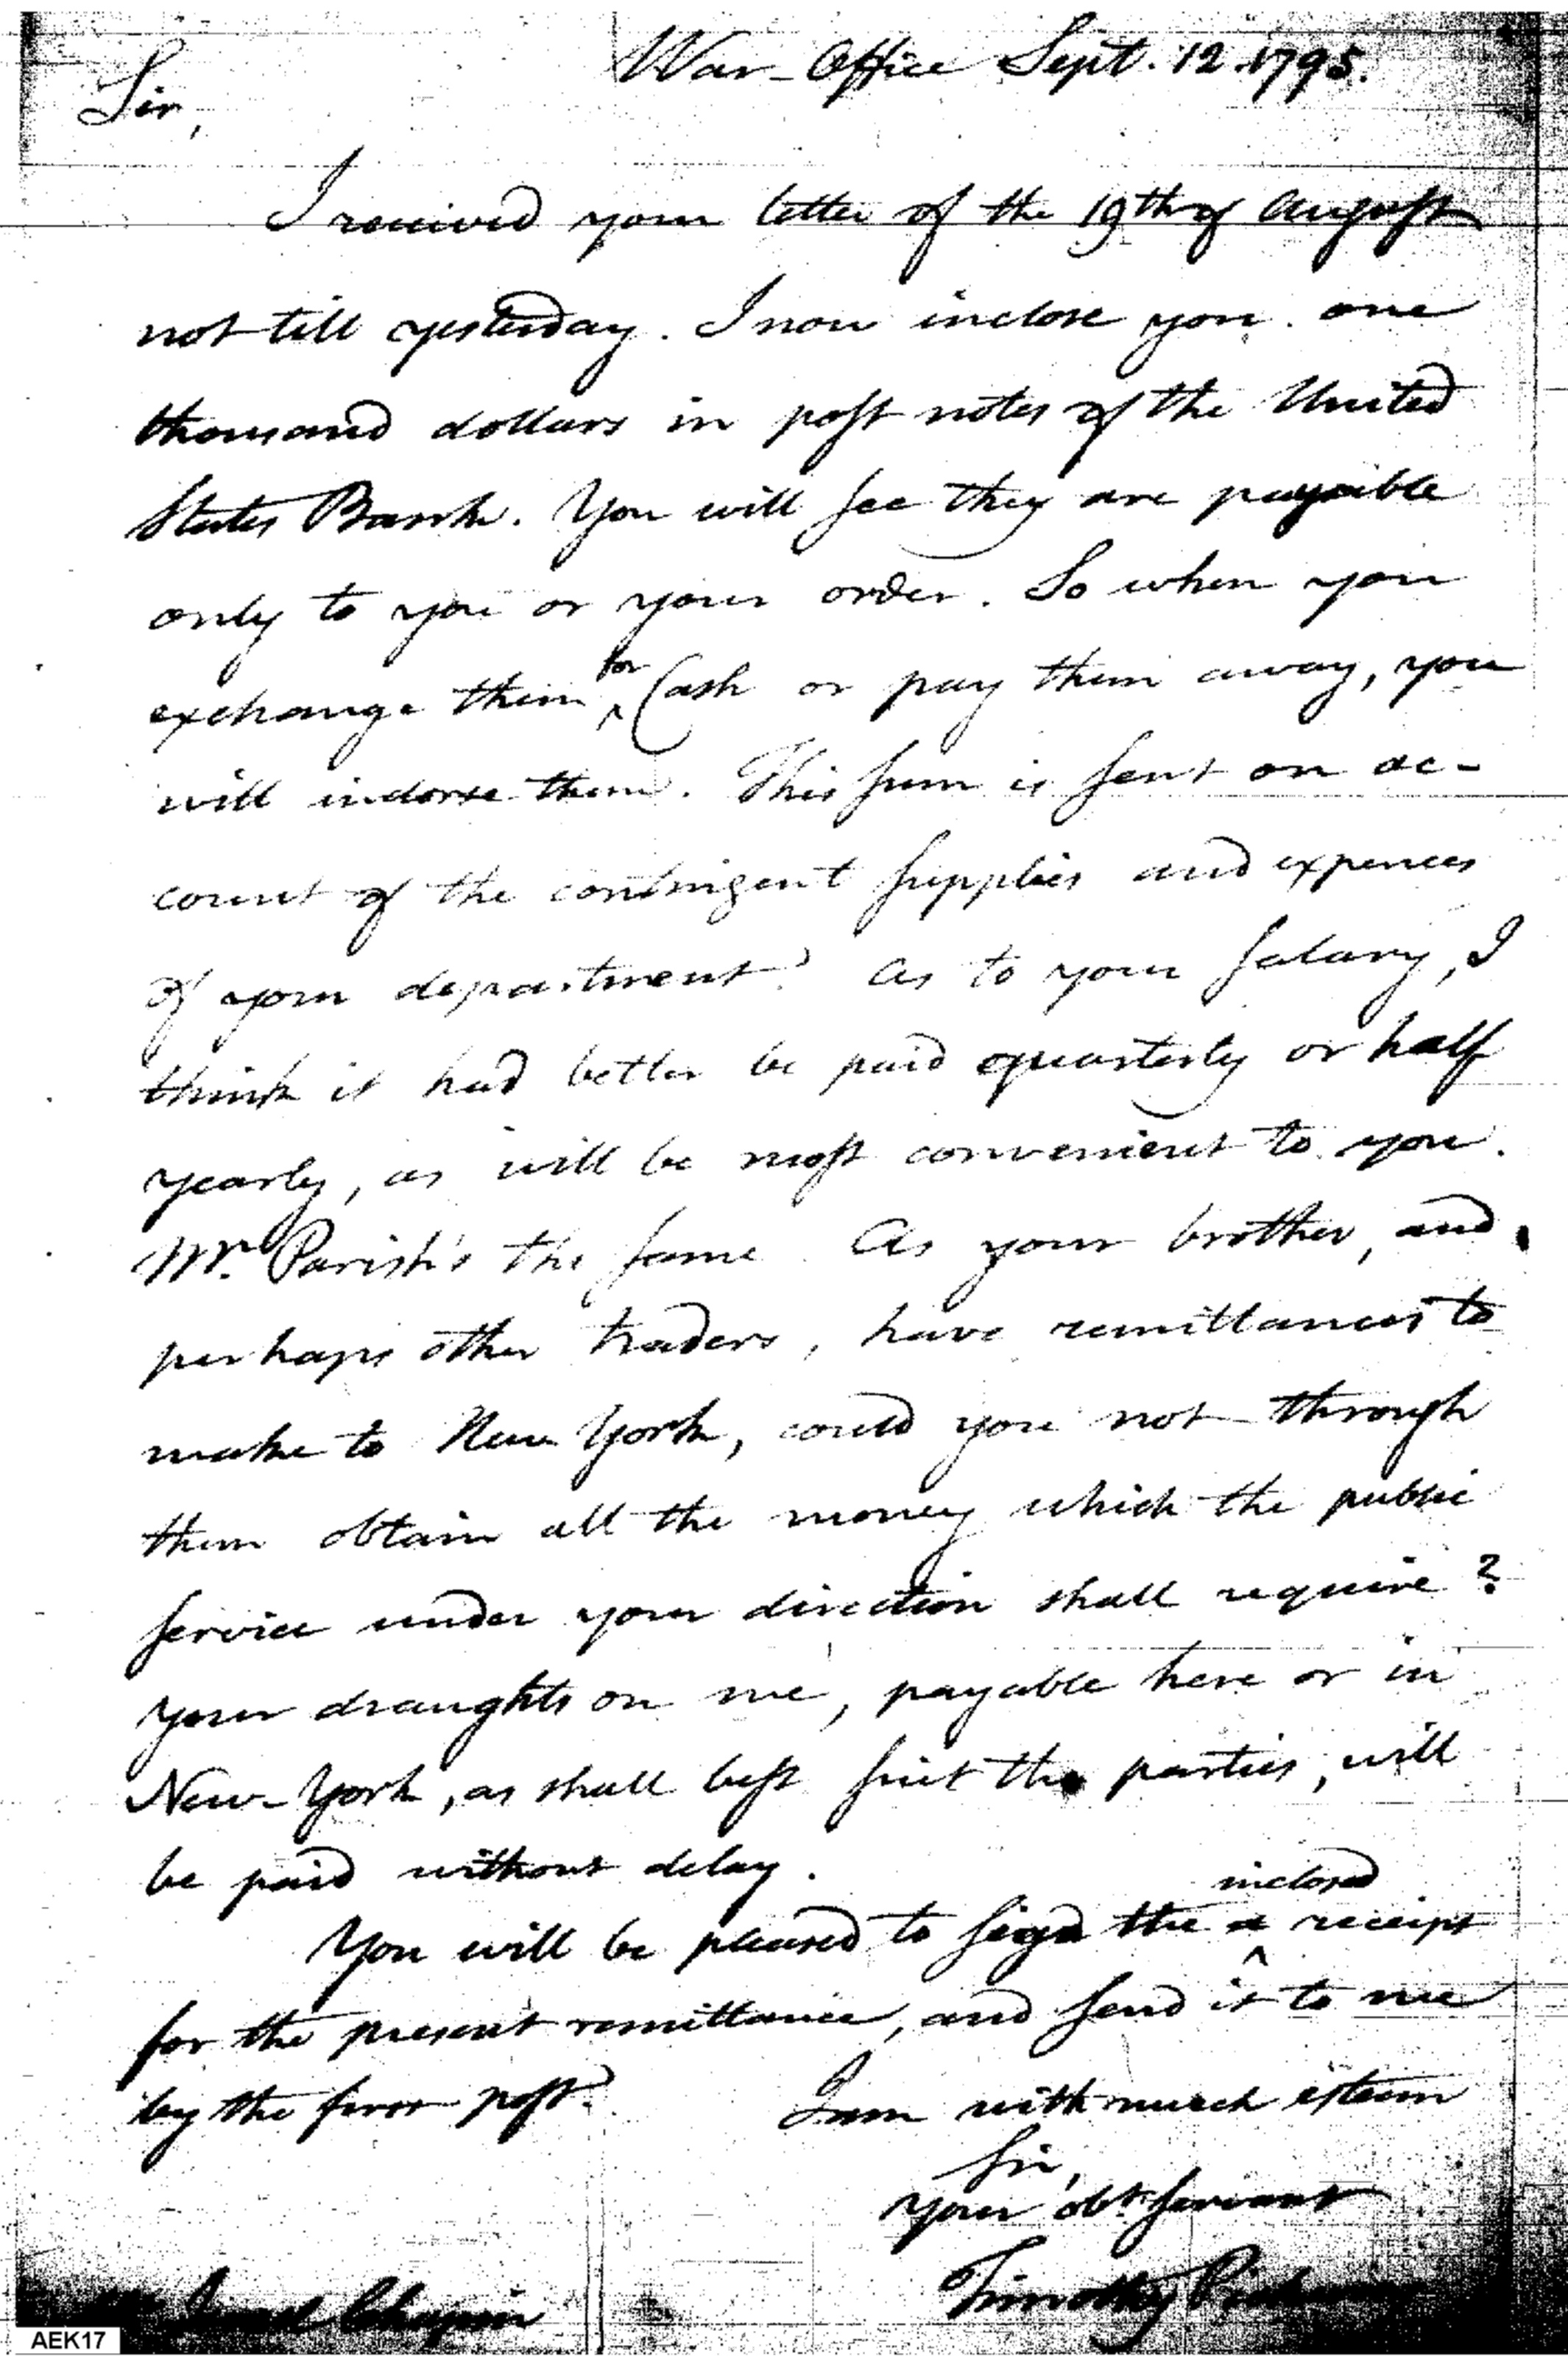 War-Office Sept. 12. 1795.
Sir,
I received your letter of the 19th of August
not till yesterday. I now inclose you one
thousand dollars in post notes of the United
States Bank. You will see they are payable
only to you or your order. So when you
for
exchange them ^ Cash or pay them away, you
will indorse them. This sum is sent on ac-
count of the contingent supplies and expences
of your department. As to your salary, I
think it had better be paid quarterly or half
yearly, as will be most convenient to you.
Mr. Parish's the same. As your brother, and
perhaps other traders, have remittances to
make to New York, could you not through
them obtain all the money which the public
service under your direction shall require?
Your draughts on me, payable here or in
New-York, as shall best suit the parties, will
be paid without delay.
inclosed
You will be pleased to sign the ^ receipt
for the present remittance, and send it to me
by the first post.
I am with much esteem
Sir,
your obt. servant
Timothy Pickering
Israel Chapin
AEK17